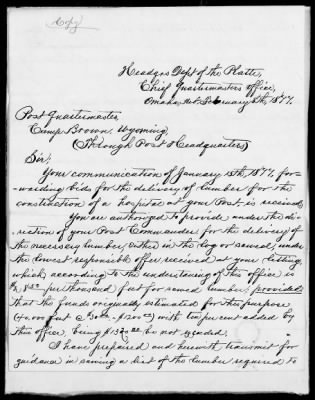 Copy
Headqrs Dept of the Platte,
Chief Quartermasters Office,
Omaha, Neb. February 8th, 1877.
Post Quartermaster
Camp Brown, Wyoming
(Through Post Headquarters)
Sir;
Your communication of January 15th, 1877, for-
warding bids for the delivery of lumber for the
construction of a hospital at your Post, is received
You are authorized to provide, under the di-
rection of your Post Commander for the delivery of
the necessary lumber, either in the log or sawed, under
the lowest responsible offer received at your letting,
which according to the understanding of this office is
per thousand feet for sawed lumber, provided
that the funds originally estimated for this purpose
feet with ten per cent added by
this office, being be not exceeded.
I have prepared and herewith transmit for
guidance in sawing a list of the lumber required to